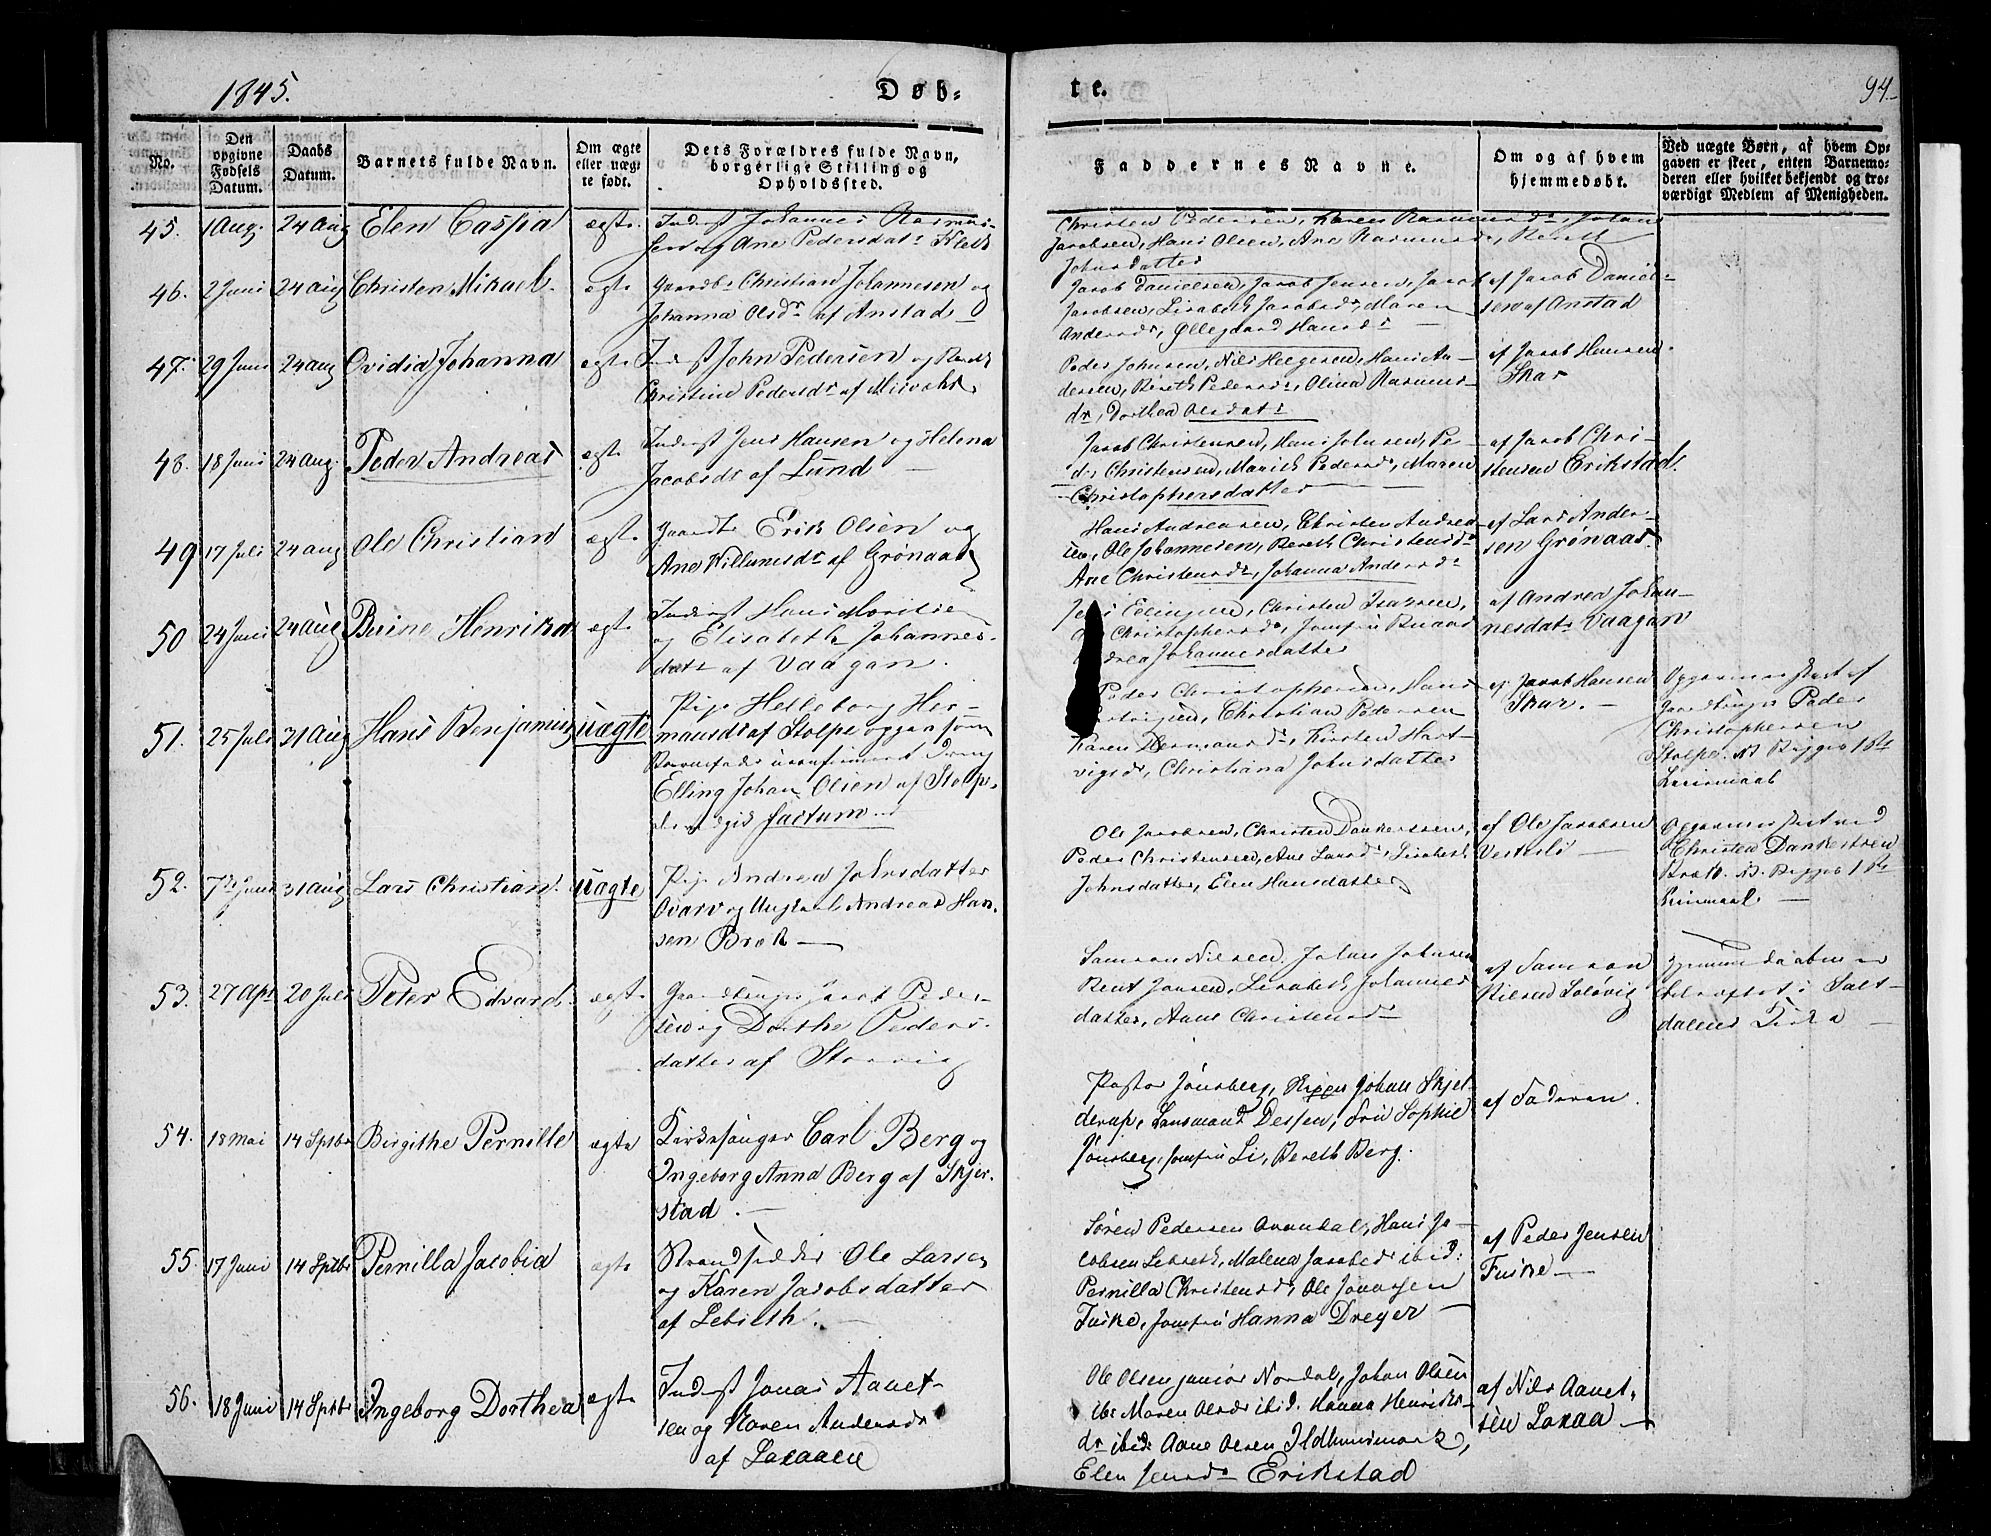 1845.
Døb-
te.
94
No.
Den opgivne Fødsels Datum.
Daabs Datum.
Barnets fulde Navn.
Om ægte eller uægte født.
Dets Forældres fulde Navn, borgerlige Stilling og Opholdssted.
Faddernes Navne.
Om og af hvem hjemmedøbt.
Ved uægte Børn, af hvem Opgaven er skeet, enten Barnemoderen eller hvilket bekjendt og troværdigt Medlem af Menigheden.
45. 1 Aug. 24 Aug Elen Caspia ægte Inderst Johannes Rasmus-
sen og Ane Pedersdatr
Christen Pedersen, Karen Rasmusdr, Johan
Jacobsen, Hans Olsen, Ane Rasmusdr, Bereth
Johnsdatter
46. 2 Juni 24 aug Christen Mikael ægte Gaardbr Christian Johannesen og
Johanna Olsdr af Anstad
Jacob Danielsen, Jacob Jensen, Jacob
Jacobsen, Lisabeth Jacobsdr, Maren
Andersdr, Øllegaard Hansdr
af Jacob Daniel-
sen af Anstad
47. 29 Juni 24 aug Ovidia Johanna ægte Inderst John Pedersen og
Christine Pedersdr af
Peder Johnsen, Nils Helgesen, Hans An-
dersen, Bereth Pedersdr, Olina Rasmus-
dr, Dorthea Olsdatr
af Jacob Hansen
Skar
48. 18 Juni 24 aug. Peder Andreas ægte Inderst Jens Hansen og Helena
Jacobsdr af Lund
Jacob Christensen, Hans Johnsen, Pe-
dr Christensen, Marith Pedersdr, Maren
Christophersdatter
af Jacob Chri-
stensen Erikstad
49 17 Juli 24 aug Ole Christian ægte Gaardbr Erik Olsen og
Ane Willumsdr af Grønaas
Hans Andreasen, Christen Andrea-
sen, Ole Johannesen, Bereth Christensdr
Ane Christensdr, Johanna Andersdr
af Lars Ander-
sen Grønaas
50 24 Juni 24 aug Berine Henrika ægte Inderst Hans Moritsen
og Elisabeth Johannes-
datr af Vaagan.
Christen Isaksen,
Christophersdr, Jomfru
Johannesdatter
af Andrea Johan-
nesdatr Vaagan
51. 25 Juli 31 Aug Hans Benjamin uægte Pige Helleborg Her-
mansdr af Stolpe opgav som
Barnefader uconfirmeret Dreng
Elling Johan Olsen af Stolpe
factum
Peder Christophersen, Hans
Christian Pedersen
Karen Hermansdr, Kirsten Hart-
vigsdr, Christiana Johnsdatter
af Jacob Hansen
Skar.
Opgaven skeet af
Peder
Christophersen
Stolpe. NB Begges 1ste
Leiermaal
52. 7de Juni 31 aug Lars Christian uægte Pige Andrea Johnsdatter
Ovarv og Ungkarl Andreas Han-
sen Bræk
Ole Jacobsen, Christen Dankertsen,
Peder Christensen, Ane Larsdr, Lisabeth
Johnsdatter, Elen Hansdatter
af Ole Jacobsen
Vestesli
Opgaven skeet ved
Christen Dankertsen
Bræk. NB. Begges 1ste
Leiermaal
53. 27 Apr 20 Juli Peter Edvard ægte Jacob Peder-
sen og Dorthe Peders-
datter af Storvig
Samson Nilsen, Johns Johnsen
Bent Jensen, Lisabeth Johannes-
datter, Aane Christensdr
af Samson
Nilsen Soløvig
Hjemmedaaben er
bekræftet i Salt-
dalens Kirke
54. 18 Mai 14 Septbr Birgithe Pernille ægte Kirkesanger Carl Berg og
Ingeborg Anna Berg af Skjer-
stad.
Pastor Jonsberg, Johan Skjel-
derup, Lensmand Dessen, Fru Sophie
Jonsberg, Jomfru Li, Bereth Berg.
af Faderen.
55. 17 Juni 14 Septbr Pernilla Jacobia ægte Strandsidder Ole Larsen
og Karen Jacobsdatter
af
Søren Pedersen Hans Ja-
cobsen Malena Jacobsdr ibid:
Pernilla Christensdr, Ole
Fuske, Jomfru Hanna Dreyer
af Peder Jensen
Fuske
56. 18 Juni 14 Septbr Ingeborg Dorthea ægte Inderst Jonas Aanet-
sen og Karen Andersdr
af
Ole Olsen junior Nordal, Johan Olsen
ibr Maren Olsdr ibid. Hanna Henriks-
dr ibidr Aane Olsen
Elen Jensdr Erikstad
af Nils Aanet-
sen Laxaa